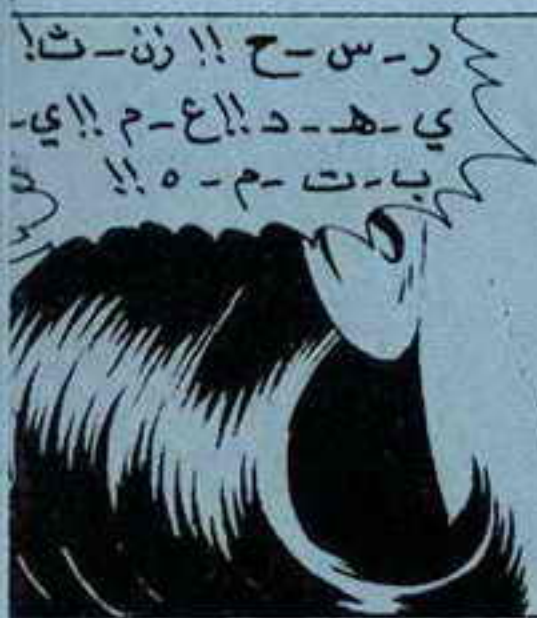 ر-س-ح !! زن-ث!
ي-هـ-د!!ع-م!!ي-
ب-ت-م-ه !!